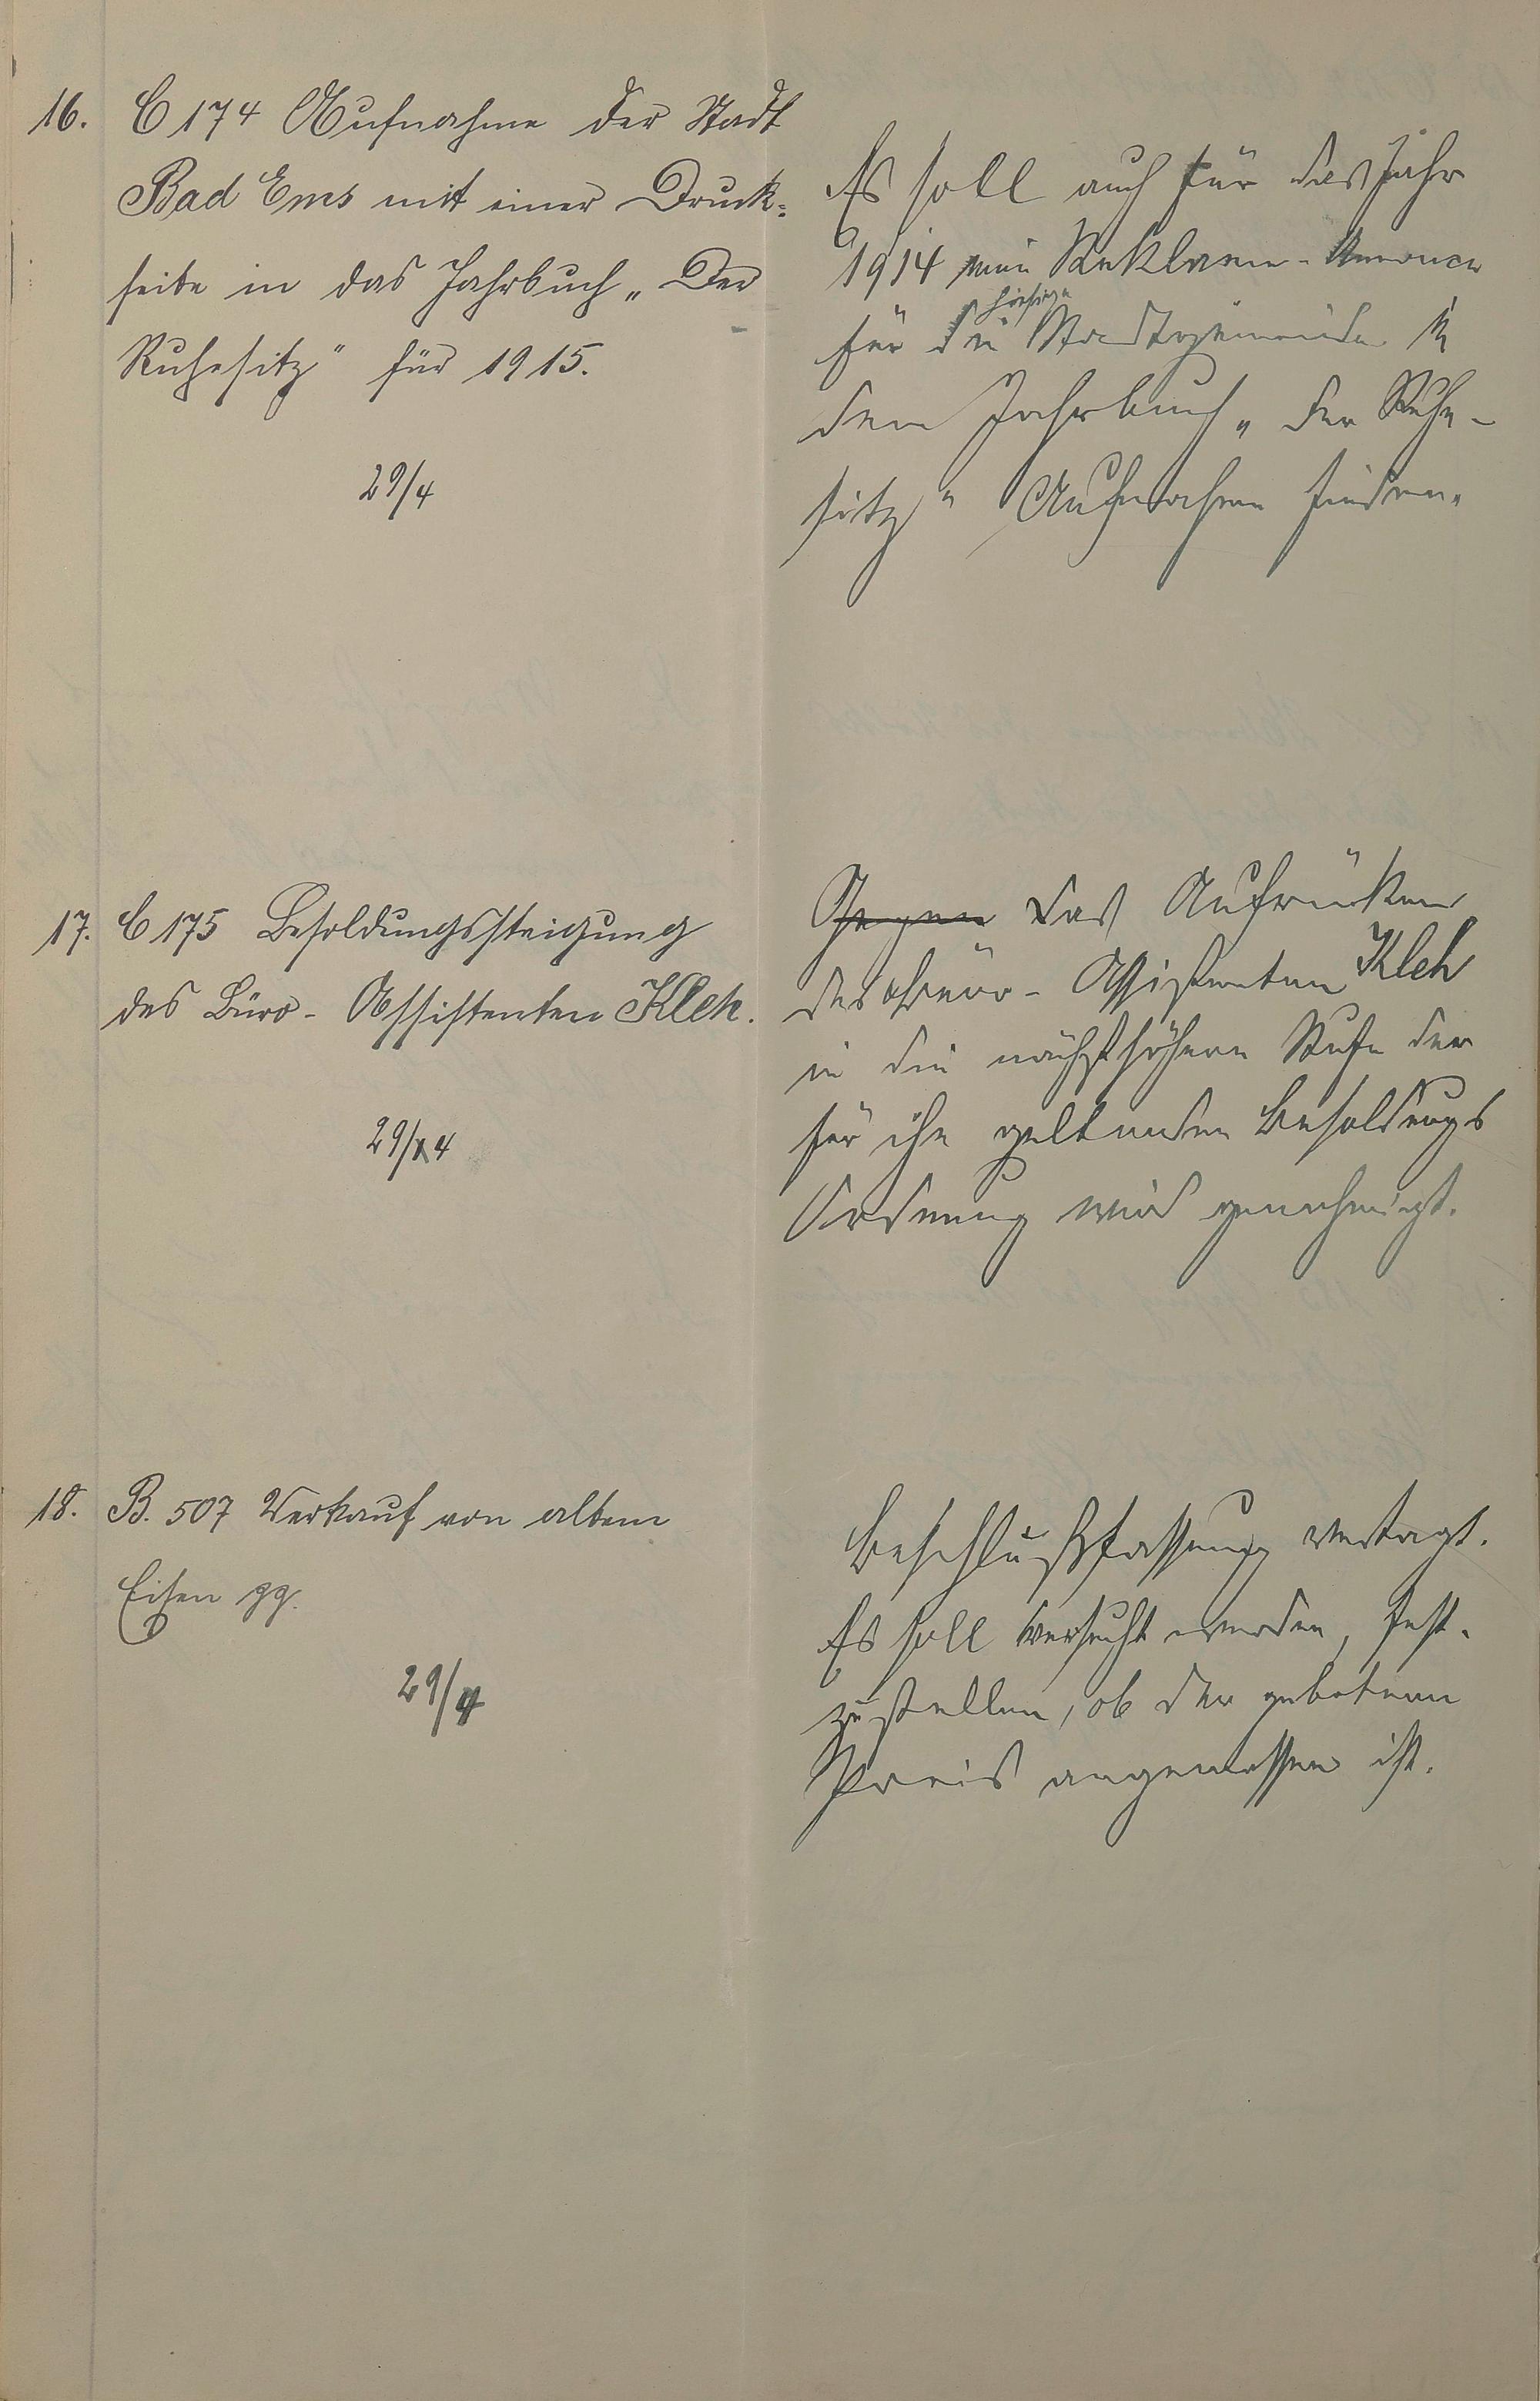 16. C 174 Aufnahme der Stadt
Bad Ems mit einer Druck-
seite in das Jahrbuch „Der
Ruhesitz" für 1915.
29/4
Es soll auch für das Jahr
1914 eine Reklame-Annonce
für die hiesige Stadtgemeinde in
dem Jahrbuch „Der Ruhe-
sitz" Aufnahme finden.
17. C 175 Besoldungssteigung
des Büro-Assistenten Kleh.
29/4
Gegen das Aufrücken
des Büro-Assistenten Kleh
in die nächsthöhere Stufe der
für ihn geltenden Besoldungs
Ordnung wird genehmigt.
18. B. 507 Verkauf von altem
Eisen pp.
29/4
Beschlußfassung vertagt.
Es soll versucht werden, fest-
zustellen, ob der gebotene
Preis angemessen ist.